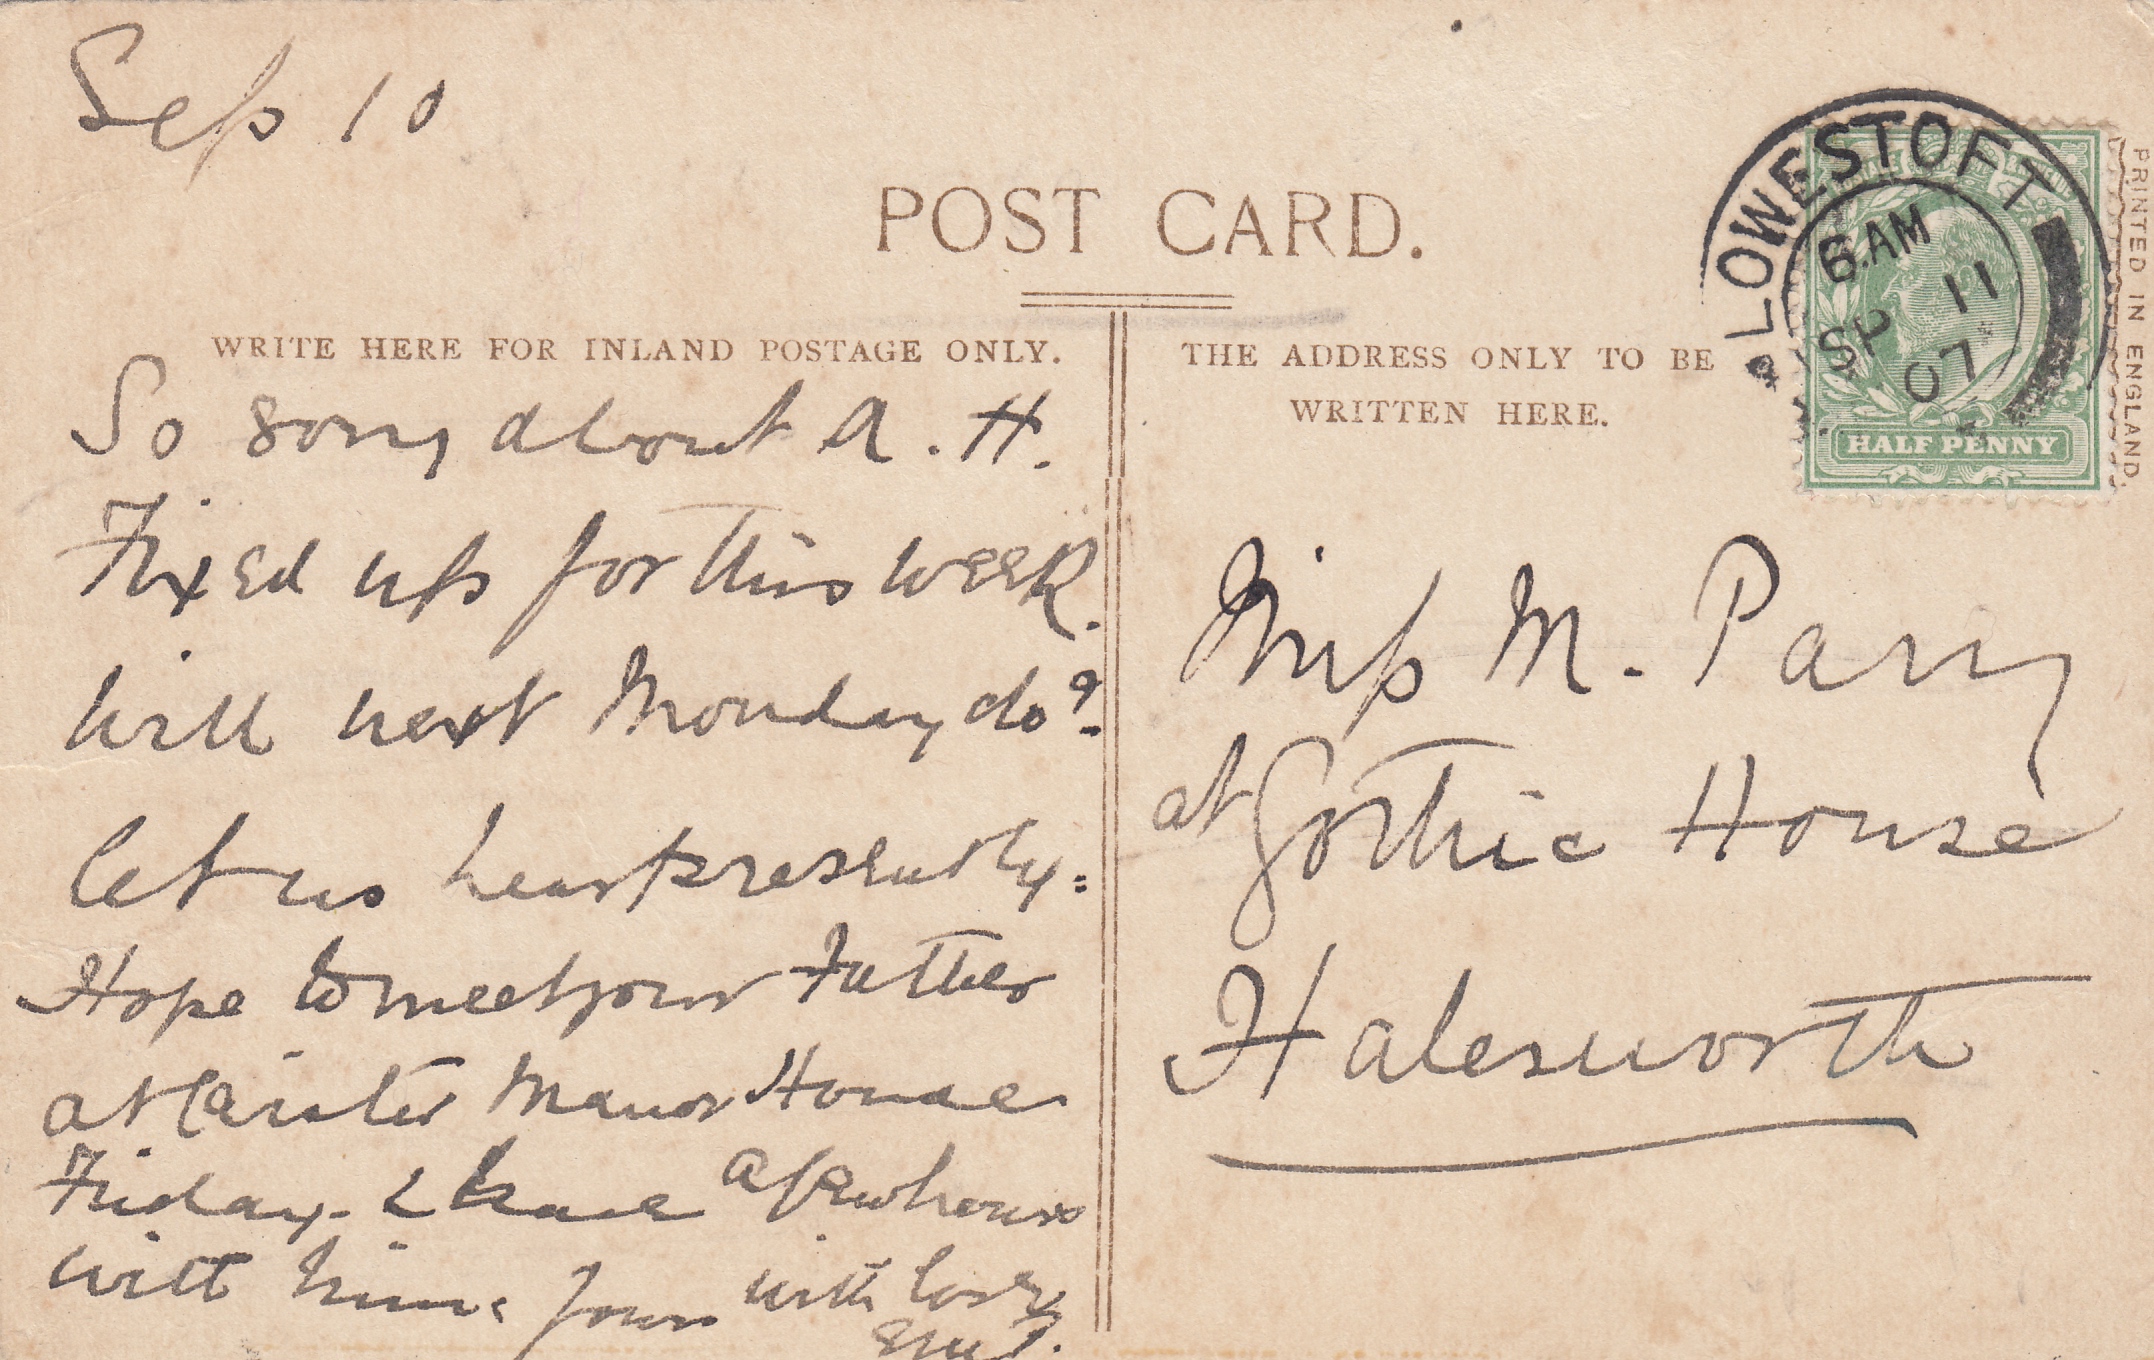 Sep 10
POST CARD.
WRITE HERE FOR INLAND POSTAGE ONLY.
So sorry about A. H.
Fixed up for this week.
Will next Monday do?
let us hear presently:
Hope to meet your Father
at Caister Manor House
Friday. & have a few hours
with him. Yours with love
THE ADDRESS ONLY TO BE
WRITTEN HERE.
Miss M. Parry
at Gothic House
Halesworth
LOWESTOFT
6.AM
SP 11
07
HALF PENNY
PRINTED IN ENGLAND.